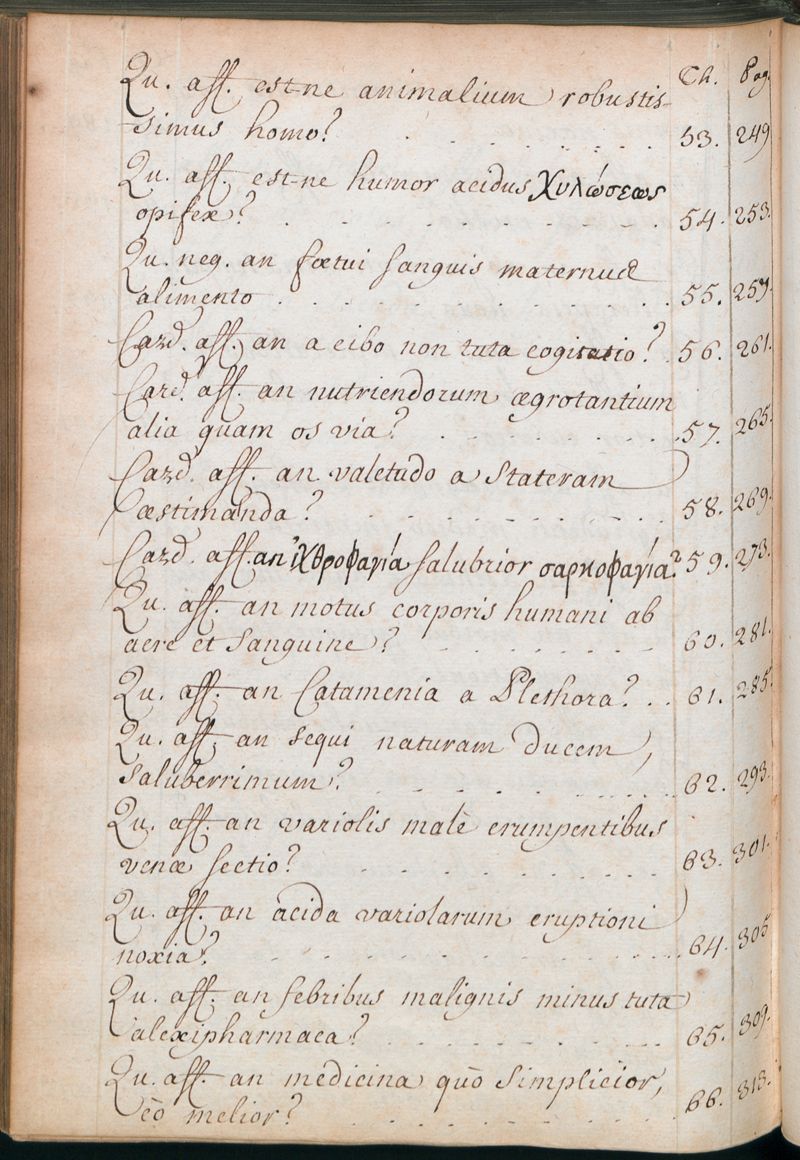 Ch. Pag.
Qu. aff. est-ne animalium robustis-
simus homo? 53. 249
Qu. aff. est-ne humor acidus Χυλώσεως
opifex? 54. 253.
Qu. neg. an fœtui sanguis maternus
alimento 55. 257.
Card. aff. an a cibo non tuta cogitatio? 56. 261.
Card. aff. an nutriendorum ægrotantium
alia quam os via? 57. 265.
Card. aff. an valetudo a Stateram
æstimanda? 58. 269.
Card. aff. an ἰχθροφαγία salubrior σαρκοφαγία? 59. 273.
Qu. aff. an motus corporis humani ab
aere et Sanguine? 60. 281.
Qu. aff. an Catamenia a Plethora? 61. 285.
Qu. aff. an sequi naturam ducem,
saluberrimum? 62. 293.
Qu. aff. an variolis malè erumpentibus
venæ sectio? 63. 301.
Qu. aff. an acida variolarum eruptioni
noxia? 64. 305
Qu. aff. an febribus malignis minus tuta
alexipharmaca? 65. 309.
Qu. aff. an medicina quò simplicior,
eò melior? 66. 313.